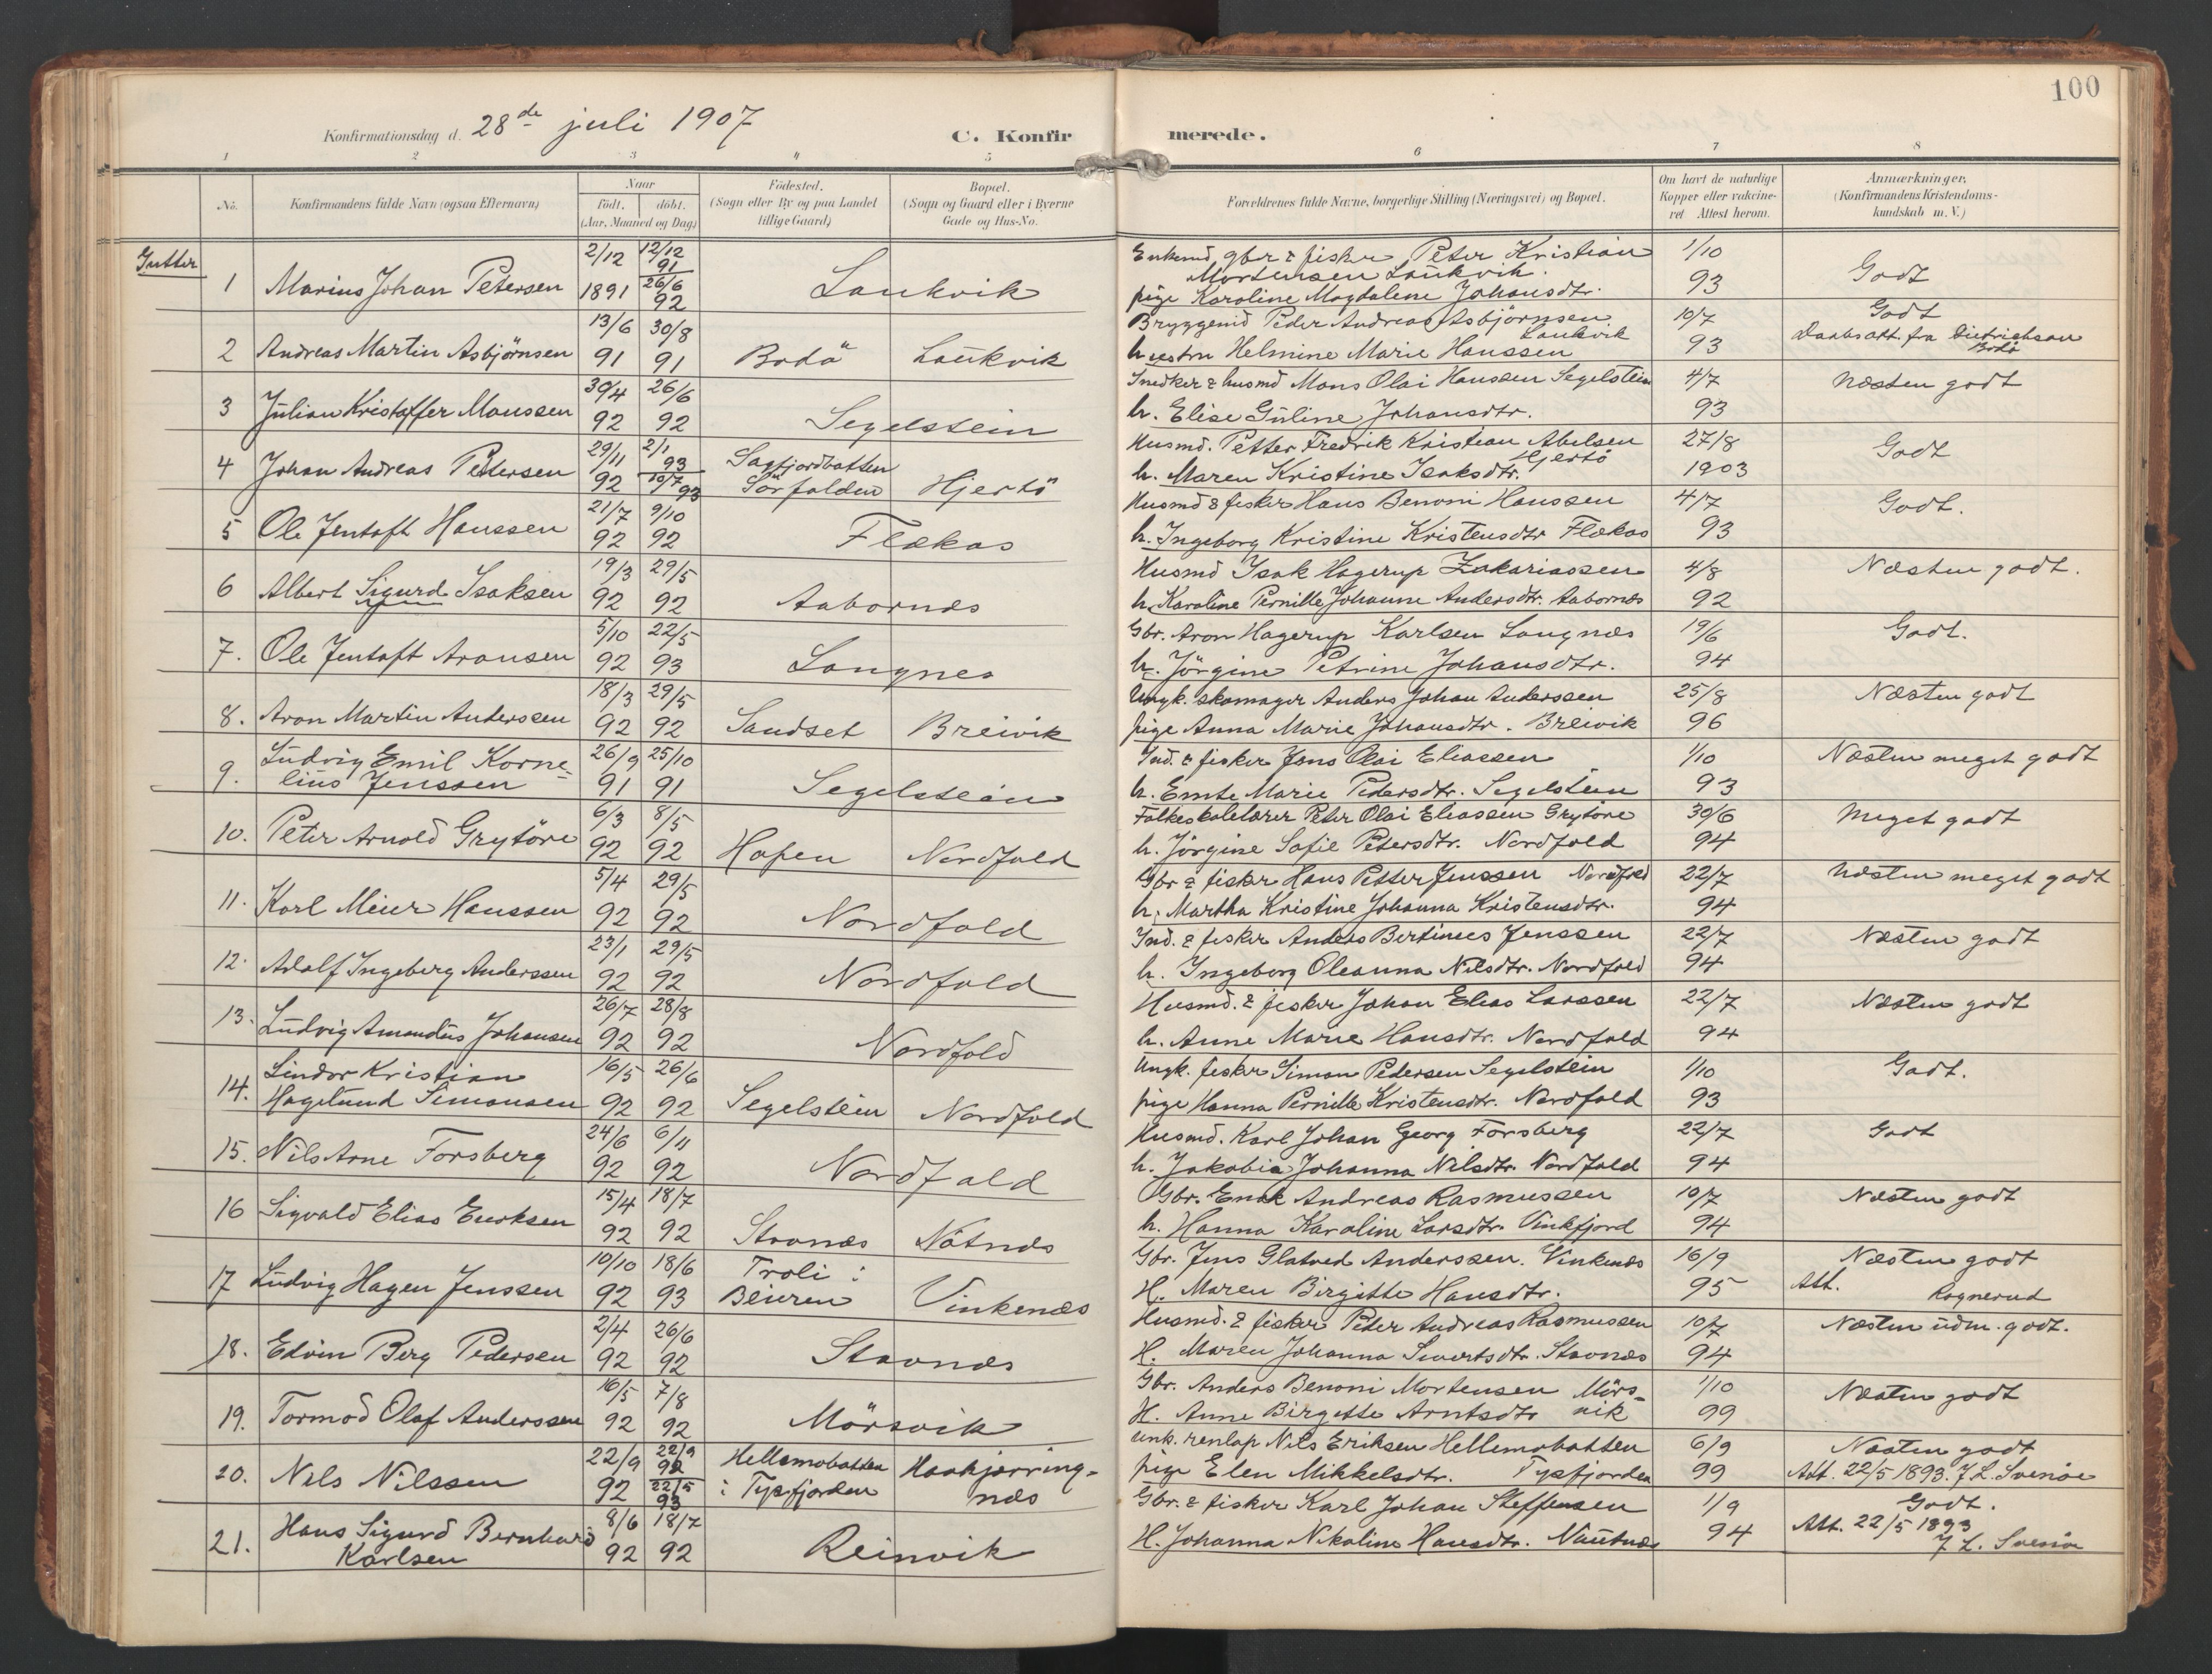 100
Konfirmationsdag d. 28de juli 1907
C. Konfirmerede.
1 2 3 4 5 6 7 8
No. Konfirmandens fulde Navn (ogsaa Efternavn) Naar født. døbt. (Aar, Maaned og Dag) Fødested. (Sogn eller By og paa Landet tillige Gaard) Bopæl. (Sogn og Gaard eller i Byerne Gade og Hus-No. Forældrenes fulde Navne, borgerlige Stilling (Næringsvei) og Bopæl. Om havt de naturlige Kopper eller vakcineret Attest herom. Anmærkninger. (Konfirmandens Kristendomskundskab m. V.)
Gutter
1 Marius Johan Petersen 2/12 1891 12/12 91 26/6 92 Laukvik Enkemd gbr & fisker Peter Kristian Mortensen Laukvik. pige Karoline Magdalene Johansdtr. 1/10 93 Godt
2 Andreas Martin Asbjørnsen 13/6 91 30/8 91 Bodö Laukvik Bryggemd Peder Andreas Asbjørnsen Laukvik hustru Helmine Marie Hanssen 10/7 93 Godt Daabsatt. fra Dietrichson Bodö
3 Julian Kristoffer Monssen 30/4 92 26/6 92 Segelstein Snedker & husmd Mons Olai Hanssen Segelstein h. Elise Guline Johansdtr. 4/7 93 Næsten godt
4 Johan Andreas Pettersen 29/11 92 2/1 93 10/7 93 Sagfjordbotten Sörfolden Hjertö Husmd. Petter Fredrik Kristian Abelsen Hjertö h. Maren Kristine Isaksdtr. 27/8 1903 Godt
5 Ole Jentoft Hanssen 21/7 92 9/10 92 Flækas Husmd & fisker Hans Benoni Hanssen h. Ingeborg Kristine Kristensdtr Flækas 4/7 93 Godt.
6 Albert Sigurd Isaksen 19/3 92 29/5 92 Aabornæs Husmd Isak Hagerup Zakariassen h. Karoline Pernille Johanne Andersdtr. Aabornæs 4/8 92 Næsten godt.
7. Ole Jentoft Aronsen 5/10 92 22/5 93 Langnes Gbr. Aron Hagerup Karlsen Langnæs h. Jörgine Petrine Johansdtr. 19/6 94 Godt.
8. Aron Martin Anderssen 18/3 92 29/5 92 Sandset Breivik Ungk. skomager Anders Johan Anderssen pige Anna Marie Johansdtr. Breivik 25/8 96 Næsten godt
9. Ludvig Emil Kornelius Jenssen 26/9 91 25/10 91 Segelstein Ind. & fisker Jens Olai Eliassen h. Emte Marie Pedersdtr. Segelstein 1/10 93 Næsten meget godt
10. Peter Arnold Grytöre 6/3 92 8/5 92 Hopen Nordfold Folkeskolelærer Peter Olai Eliassen Grytöre h. Jörgine Sofie Petersdtr. Nordfold 30/6 94 Meget godt
11. Karl Meier Hanssen 5/4 92 29/5 92 Nordfold Gbr & fisker Hans Petter Jenssen Nordfold h. Martha Kristine Johanna Kristensdtr. 22/7 94 Næsten meget godt
12. Adolf Ingeberg Anderssen 23/1 92 29/5 92 Nordfold Ind. & fisker Anders Bertinus Jenssen h. Ingeborg Oleanna Nilsdtr. Nordfold 22/7 94 Næsten godt
13. Ludvig Amandus Johansen 26/7 92 28/8 92 Nordfold Husmd. & fisker Johan Elias Larssen h. Anne Marie Hansdtr. Nordfold 22/7 94 Næsten godt
14. Lindor Kristian Hagelund Simonsen 16/5 92 26/6 92 Segelstein Nordfold Ungk. fisker Simon Pedersen Segelstein pige Hanna Pernille Kristensdtr. Nordfold 1/10 93 Godt.
15. Nils Arne Forsberg 24/6 92 6/11 92 Nordfold Husmd. Karl Johan Georg Forsberg h. Jakobia Johanna Nilsdtr. Nordfold 22/7 94 Godt
16 Sigvald Elias Enoksen 15/4 92 18/7 92 Stavnæs Nötnæs Gbr. Enok Andreas Rasmussen h. Hanna Karoline Larsdtr. Vinkfjord 10/7 94 Næsten godt
17 Ludvig Hagen Jenssen 10/10 92 18/6 93 Troli i Beieren Vinkenæs Gbr. Jens Glatved Anderssen. Vinkenæs H. Maren Birgitte Hansdtr. 16/9 95 Næsten godt Att. Rognerud
18. Edvin Berg Pedersen 2/4 92 26/6 92 Stavnæs Husmd. & fisker Peter Andreas Rasmussen H. Maren Johanna Sivertsdtr. Stavnæs 10/7 94 Næsten udm. godt.
19. Tormod Olaf Anderssen 16/5 92 7/8 92 Mörsvik Gbr. Anders Benoni Mortensen Mörsvik H. Anne Birgitte Arntsdtr 1/10 99 Næsten godt
20. Nils Nilssen 22/9 92 22/9 92 22/5 93 Hellemobotten i Tysfjorden Haakjærringnæs Unk. renlap Nils Eriksen Hellemobotten pige Elen Mikkelsdtr. Tysfjorden 6/9 99 Næsten godt Att. 22/5 1893. J. L. Svenöe
21. Hans Sigurd Bernhard Karlsen 8/6 92 18/7 92 Reinvik Gbr. & fisker Karl Johan Steffensen H. Johanna Nikoline Hansdtr. Nautnæs 1/9 94 Godt. Att. 22/5 1893 J. L. Svenöe